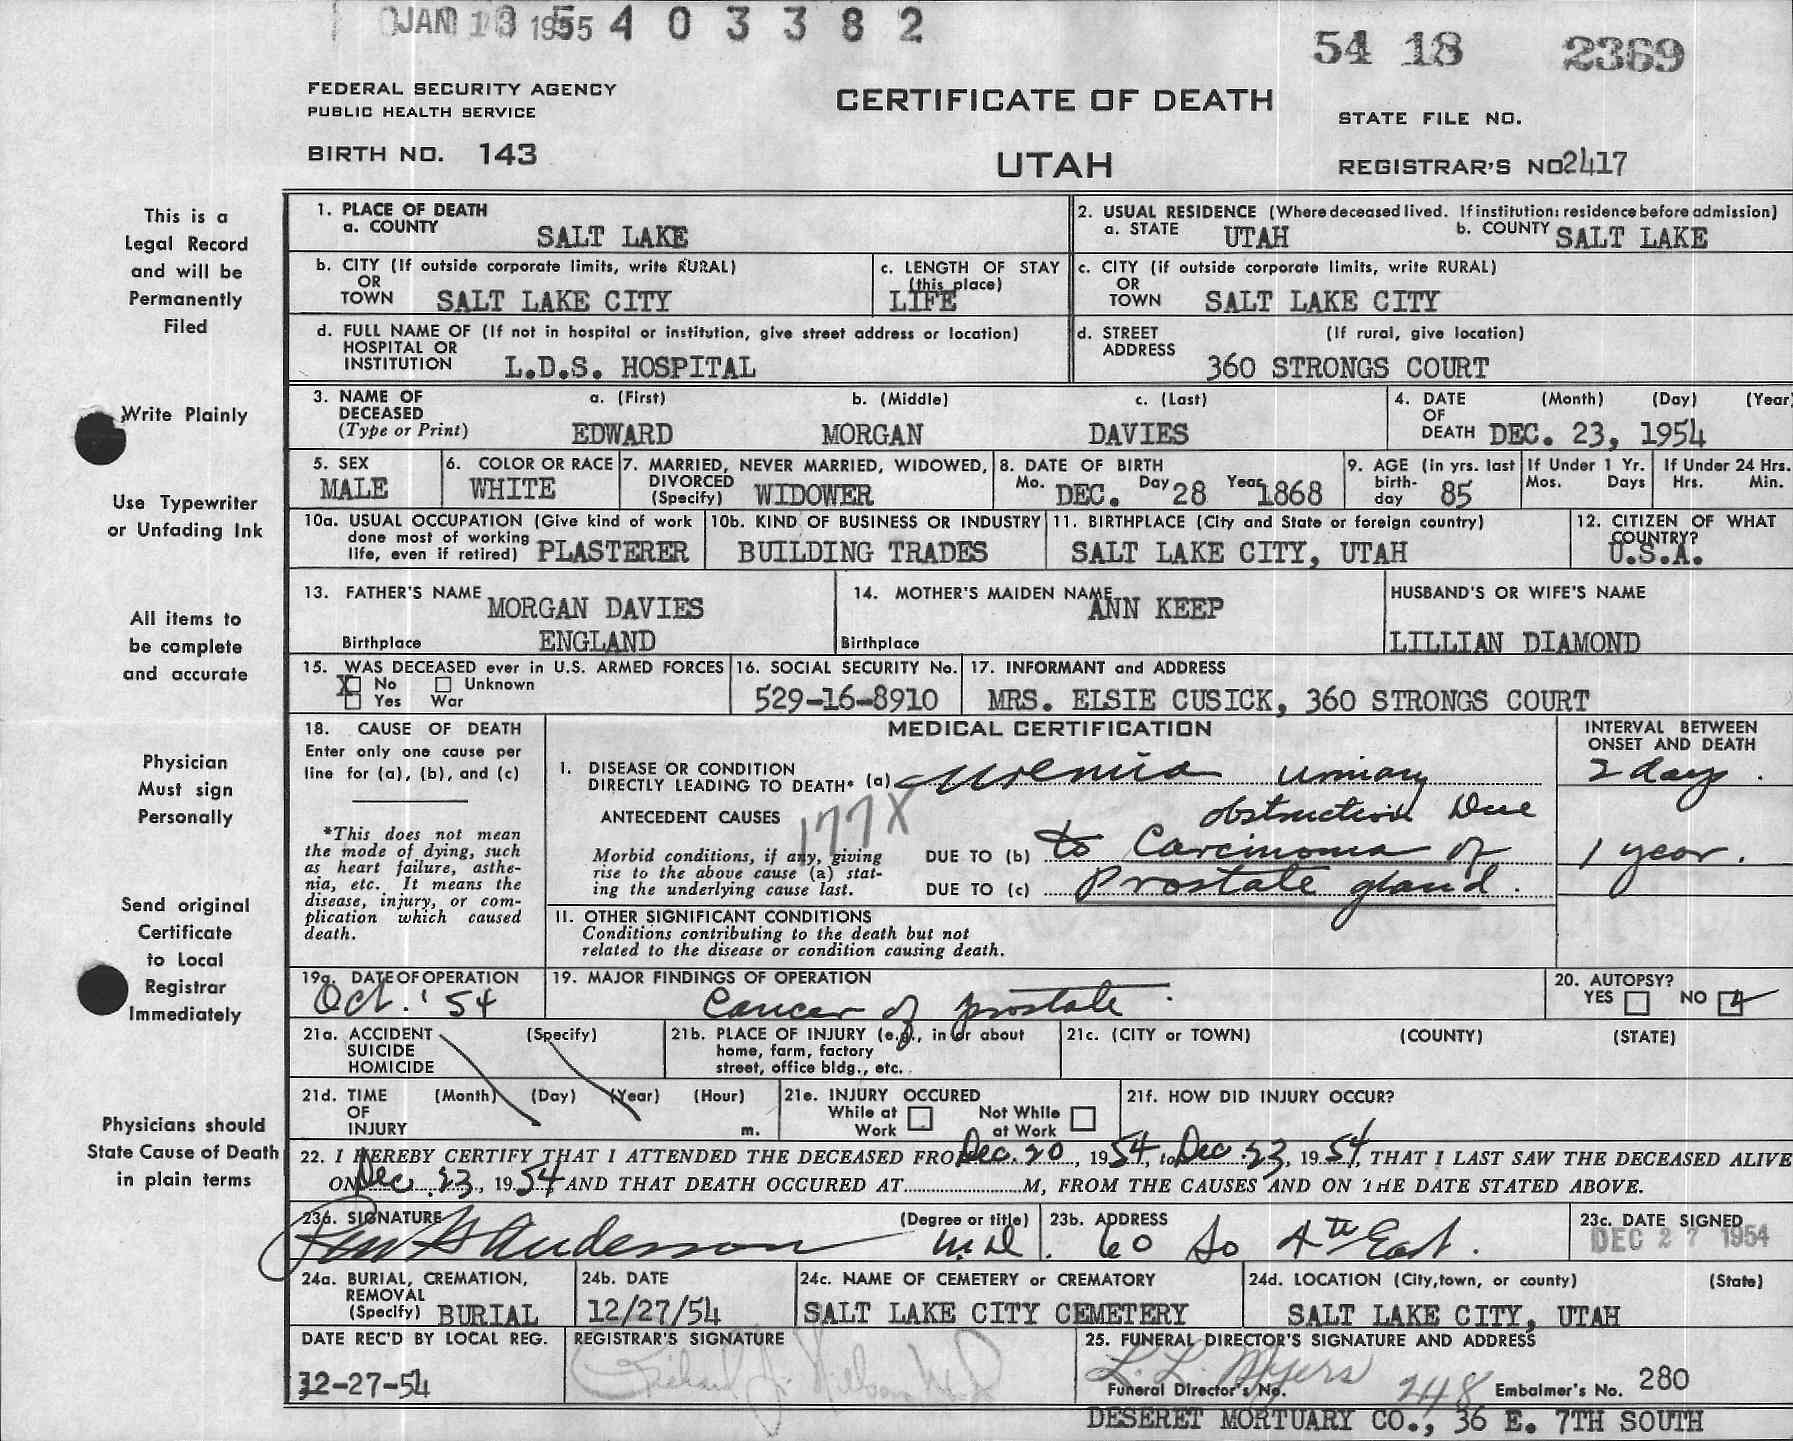 JAN 13 1955 4 0 3 3 8 2
54 18 2369
FEDERAL SECURITY AGENCY
PUBLIC HEALTH SERVICE
CERTIFICATE OF DEATH
STATE FILE NO.
BIRTH NO. 143
UTAH
REGISTRAR'S NO 2417
This is a
Legal Record
and will be
Permanently
Filed
Write Plainly
Use Typewriter
or Unfading Ink
All items to
be complete
and accurate
Physician
Must sign
Personally
Send original
Certificate
to Local
Registrar
Immediately
Physicians should
State Cause of Death
in plain terms
1. PLACE OF DEATH
a. COUNTY SALT LAKE
2. USUAL RESIDENCE (Where deceased lived. If institution: residence before admission)
a. STATE UTAH b. COUNTY SALT LAKE
b. CITY (If outside corporate limits, write RURAL)
OR
TOWN SALT LAKE CITY
c. LENGTH OF STAY
(this place)
LIFE
c. CITY (if outside corporate limits, write RURAL)
OR
TOWN SALT LAKE CITY
d. FULL NAME OF (If not in hospital or institution, give street address or location)
HOSPITAL OR
INSTITUTION L.D.S. HOSPITAL
d. STREET (If rural, give location)
ADDRESS 360 STRONGS COURT
3. NAME OF a. (First) b. (Middle) c. (Last)
DECEASED
(Type or Print) EDWARD MORGAN DAVIES
4. DATE (Month) (Day) (Year
OF
DEATH DEC. 23, 1954
5. SEX
MALE
6. COLOR OR RACE
WHITE
7. MARRIED, NEVER MARRIED, WIDOWED,
DIVORCED
(Specify) WIDOWER
8. DATE OF BIRTH
Mo. DEC. Day 28 Year 1868
9. AGE (in yrs. last
birth-
day 85
If Under 1 Yr.
Mos. Days
If Under 24 Hrs.
Hrs. Min.
10a. USUAL OCCUPATION (Give kind of work
done most of working
life, even if retired) PLASTERER
10b. KIND OF BUSINESS OR INDUSTRY
BUILDING TRADES
11. BIRTHPLACE (City and State or foreign country)
SALT LAKE CITY, UTAH
12. CITIZEN OF WHAT
COUNTRY?
U.S.A.
13. FATHER'S NAME MORGAN DAVIES
Birthplace ENGLAND
14. MOTHER'S MAIDEN NAME ANN KEEP
Birthplace
HUSBAND'S OR WIFE'S NAME
LILLIAN DIAMOND
15. WAS DECEASED ever in U.S. ARMED FORCES
X No Unknown
Yes War
16. SOCIAL SECURITY No.
529-16-8910
17. INFORMANT and ADDRESS
MRS. ELSIE CUSICK, 360 STRONGS COURT
18. CAUSE OF DEATH
Enter only one cause per
line for (a), (b), and (c)
*This does not mean
the mode of dying, such
as heart failure, asthe-
nia, etc. It means the
disease, injury, or com-
plication which caused
death.
MEDICAL CERTIFICATION
INTERVAL BETWEEN
ONSET AND DEATH
I. DISEASE OR CONDITION
DIRECTLY LEADING TO DEATH* (a) Uremia urinary 2 days.
ANTECEDENT CAUSES 177X obstruction Due
Morbid conditions, if any, giving
rise to the above cause (a) stat-
ing the underlying cause last.
DUE TO (b) to Carcinoma of 1 year.
DUE TO (c) Prostate gland.
II. OTHER SIGNIFICANT CONDITIONS
Conditions contributing to the death but not
related to the disease or condition causing death.
19a. DATE OF OPERATION
Oct. '54
19. MAJOR FINDINGS OF OPERATION
Cancer of prostate.
20. AUTOPSY?
YES NO
21a. ACCIDENT (Specify)
SUICIDE
HOMICIDE
21b. PLACE OF INJURY (e.g., in or about
home, farm, factory
street, office bldg., etc.
21c. (CITY or TOWN) (COUNTY) (STATE)
21d. TIME (Month) (Day) (Year) (Hour)
OF
INJURY m.
21e. INJURY OCCURED
While at Not While
Work at Work
21f. HOW DID INJURY OCCUR?
22. I HEREBY CERTIFY THAT I ATTENDED THE DECEASED FROM Dec. 20, 1954, to Dec. 23, 1954, THAT I LAST SAW THE DECEASED ALIVE
ON Dec. 23, 1954 AND THAT DEATH OCCURED AT M, FROM THE CAUSES AND ON THE DATE STATED ABOVE.
23a. SIGNATURE (Degree or title)
Anderson M.D.
23b. ADDRESS
60 So 4th East.
23c. DATE SIGNED
DEC 27 1954
24a. BURIAL, CREMATION,
REMOVAL
(Specify) BURIAL
24b. DATE
12/27/54
24c. NAME OF CEMETERY or CREMATORY
SALT LAKE CITY CEMETERY
24d. LOCATION (City, town, or county) (State)
SALT LAKE CITY, UTAH
DATE REC'D BY LOCAL REG.
12-27-54
REGISTRAR'S SIGNATURE
Richard J. Nelson M.D.
25. FUNERAL DIRECTOR'S SIGNATURE AND ADDRESS
L. L. Myers
Funeral Director's No. 248 Embalmer's No. 280
DESERET MORTUARY CO., 36 E. 7TH SOUTH